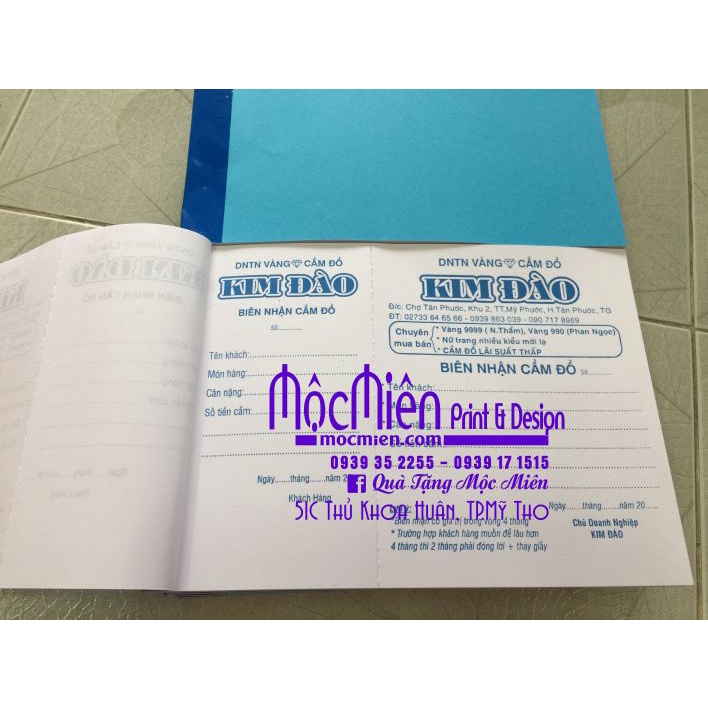 DNTN VÀNG CẦM ĐỒ
KIM ĐÀO
BIÊN NHẬN CẦM ĐỒ
DNTN VÀNG CẦM ĐỒ
KIM ĐÀO
BIÊN NHẬN CẦM ĐỒ
Số:..........
Tên khách:
Món hàng:
Cân nặng:
Số tiền cầm:
Ngày......tháng......năm 20
Khách Hàng
DNTN VÀNG CẦM ĐỒ
KIM ĐÀO
Đ/c: Chợ Tân Phước, Khu 2, TT.Mỹ Phước, H.Tân Phước, TG
ĐT: 02733 64 65 66 - 0939 863 039 - 090 717 8969
Chuyên mua bán
* Vàng 9999 ( N.Thẩm), Vàng 990 (Phan Ngọc)
* Nữ trang nhiều kiểu mới lạ
* CẦM ĐỒ LÃI SUẤT THẤP
BIÊN NHẬN CẦM ĐỒ Số:
Tên khách:
Món hàng:
Cân nặng:
Số tiền cầm:
Ngày......tháng......năm 20......
Biên nhận có giá trị trong vòng 4 tháng
* Trường hợp khách hàng muốn để lâu hơn
4 tháng thì 2 tháng phải đóng lời + thay giấy
Chủ Doanh Nghiệp
KIM ĐÀO
MộcMiên Print & Design
mocmien.com
0939 35 2255 - 0939 17 1515
Quà Tặng Mộc Miên
51C Thủ Khoa Huân, TP.Mỹ Tho